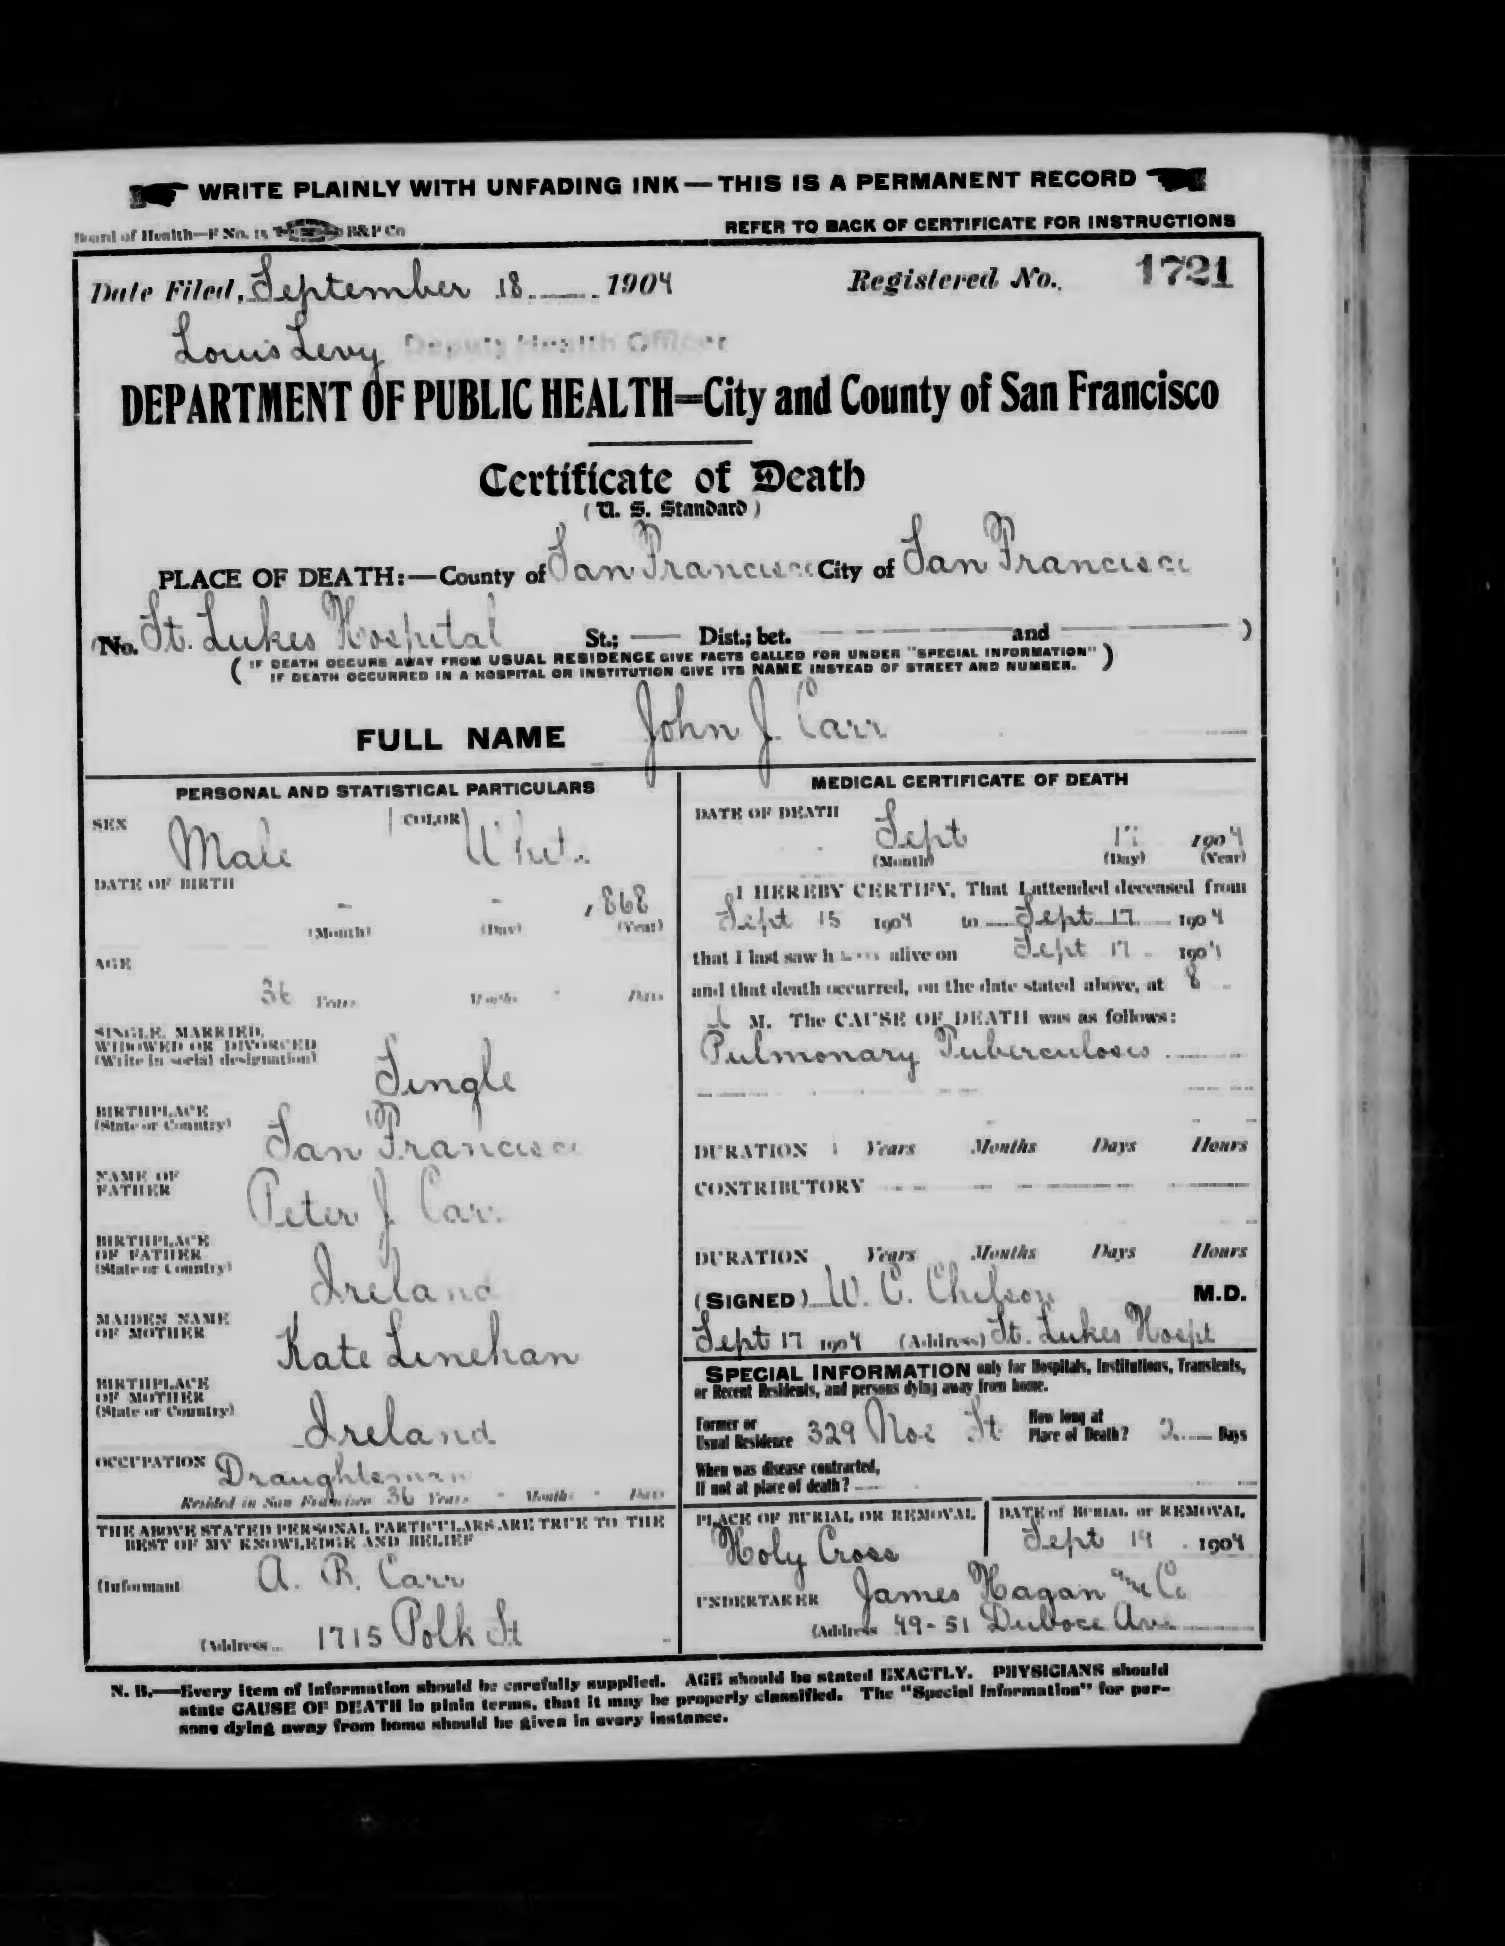 WRITE PLAINLY WITH UNFADING INK — THIS IS A PERMANENT RECORD
Board of Health—F No. 15 B&P Co
REFER TO BACK OF CERTIFICATE FOR INSTRUCTIONS
Date Filed, September 18 1904 Registered No. 1721
Louis Levy Deputy Health Officer
DEPARTMENT OF PUBLIC HEALTH=City and County of San Francisco
Certificate of Death
(U. S. Standard)
PLACE OF DEATH:—County of San Francisco City of San Francisco
(No. St. Lukes Hospital St.; — Dist.; bet. — and — )
( IF DEATH OCCURS AWAY FROM USUAL RESIDENCE GIVE FACTS CALLED FOR UNDER "SPECIAL INFORMATION"
IF DEATH OCCURRED IN A HOSPITAL OR INSTITUTION GIVE ITS NAME INSTEAD OF STREET AND NUMBER. )
FULL NAME John J. Carr
PERSONAL AND STATISTICAL PARTICULARS
SEX Male COLOR White
DATE OF BIRTH
- - 1868
(Month) (Day) (Year)
AGE
36 Years Months - Days
SINGLE, MARRIED,
WIDOWED OR DIVORCED
(Write in social designation)
Single
BIRTHPLACE
(State or Country)
San Francisco
NAME OF
FATHER
Peter J. Carr
BIRTHPLACE
OF FATHER
(State or Country)
Ireland
MAIDEN NAME
OF MOTHER
Kate Linehan
BIRTHPLACE
OF MOTHER
(State or Country)
Ireland
OCCUPATION Draughtsman
Resided in San Francisco 36 Years - Months - Days
THE ABOVE STATED PERSONAL PARTICULARS ARE TRUE TO THE
BEST OF MY KNOWLEDGE AND BELIEF
(Informant A. R. Carr
(Address 1715 Polk St
MEDICAL CERTIFICATE OF DEATH
DATE OF DEATH
Sept 17 1904
(Month) (Day) (Year)
I HEREBY CERTIFY, That I attended deceased from
Sept 15 1904 to Sept 17 1904
that I last saw h alive on Sept 17 1904
and that death occurred, on the date stated above, at 8
M. The CAUSE OF DEATH was as follows:
Pulmonary Tuberculosis
DURATION Years Months Days Hours
CONTRIBUTORY
DURATION Years Months Days Hours
(SIGNED) W. C. Chilson M.D.
Sept 17 1904 (Address) St. Lukes Hospt
SPECIAL INFORMATION only for Hospitals, Institutions, Transients,
or Recent Residents, and persons dying away from home.
Former or
Usual Residence 329 Noe St
How long at
Place of Death? 2 Days
When was disease contracted,
If not at place of death?
PLACE OF BURIAL OR REMOVAL
Holy Cross
DATE of BURIAL or REMOVAL
Sept 19 1904
UNDERTAKER James Hagan and Co
(Address 49-51 Duboce Ave
N. B.—Every item of information should be carefully supplied. AGE should be stated EXACTLY. PHYSICIANS should
state CAUSE OF DEATH in plain terms, that it may be properly classified. The "Special Information" for per-
sons dying away from home should be given in every instance.